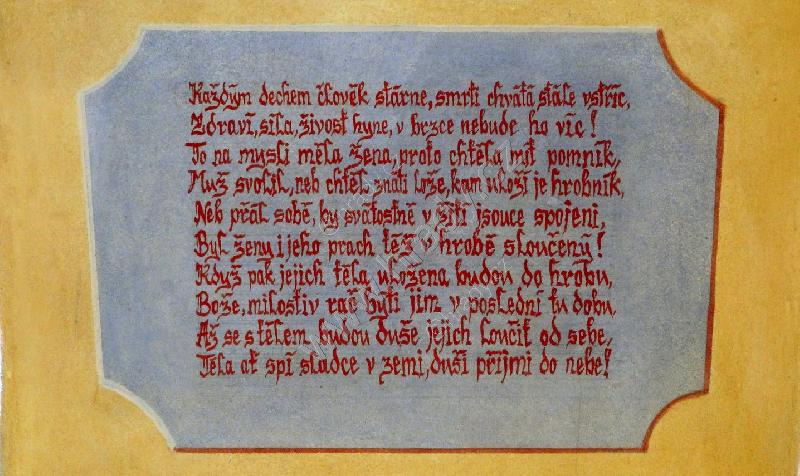 Každým dechem člověk stárne, smrti chvátá stále vstříc,
Zdraví, síla, živost hyne, v brzce nebude ho víc!
To na mysli měla žena, proto chtěla mít pomník,
Muž svolil, neb chtěl znáti lože, kam uloží je hrobník,
Neb přál sobě, by svátostně v žití jsouce spojeni,
Byl ženy i jeho prach též v hrobě sloučený!
Když pak jejich těla uložena budou do hrobu,
Bože, milostiv rač býti jim v poslední tu dobu.
Až se s tělem budou duše jejich loučit od sebe,
Těla ať spí sladce v zemi, duši přijmi do nebe!